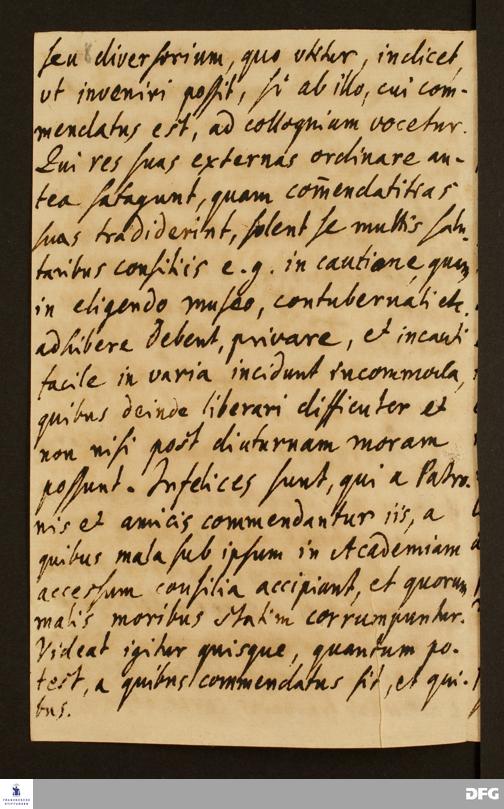 seu diversorium, quo vtitur, indicet,
vt inveniri possit, si ab illo, cui com-
mendatus est, ad colloquium vocetur.
Qui res suas externas ordinare an-
tea satagunt, quam com̄endatitias
suas tradiderint, solent se multis salu-
taribus consiliis e. g. in cautione, quam
in eligendo museo, contubernali etc.
adhibere debent, privare, et incauti
facile in varia incidunt incommoda,
quibus deinde liberari difficulter et
non nisi post diuturnam moram
possunt. Infelices sunt, qui a Patro-
nis et amicis commendantur iis, a
quibus mala sub ipsum in Academiam
accessum consilia accipiunt, et quorum
malis moribus statim corrumpuntur.
Videat igitur quisque, quantum po-
test, a quibus commendatus sit, et qui-
bus.
FRANCKESCHE
STIFTUNGEN
DFG